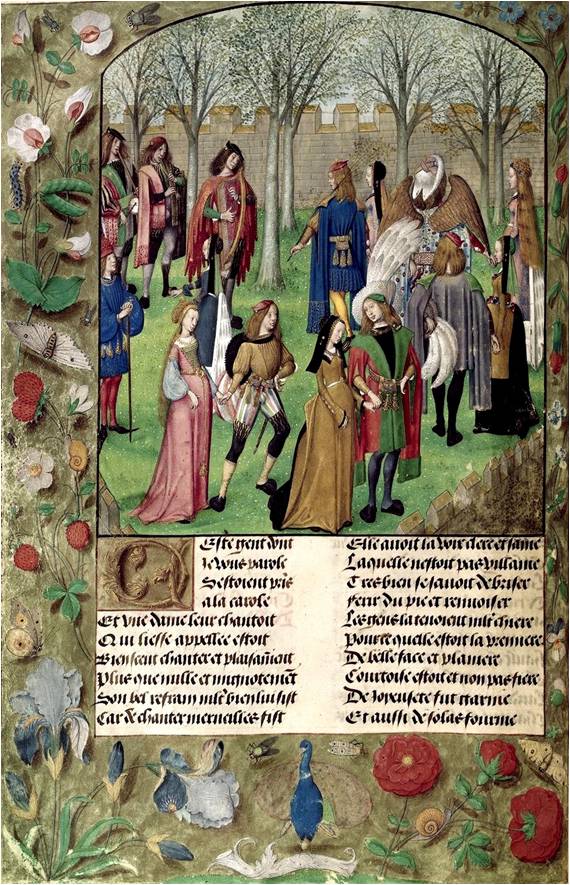 Ceste gent dont
Je vous parole
Sestoient pris
a la carole
Et vne dame leur chantoit
Qui liesse appellee estoit
Bien sceut chanter et plaisam̃ent
Plus que nulle et mignotemẽt
Son bel refrain mlt̃ bien lui sist
Car de chanter merueilles fist
Elle auoit la voix clere et saine
Laquelle nestoit pas villaine
Tres bien se sauoit debriser
ferir du pie et renuoiser
Les gens la tenoient mlt̃ chiere
Pource quelle estoit la premiere
De belle face et planiere
Courtoise estoit et non pas fiere
De Joyeusete fut garnie
Et aussi de solas fournie